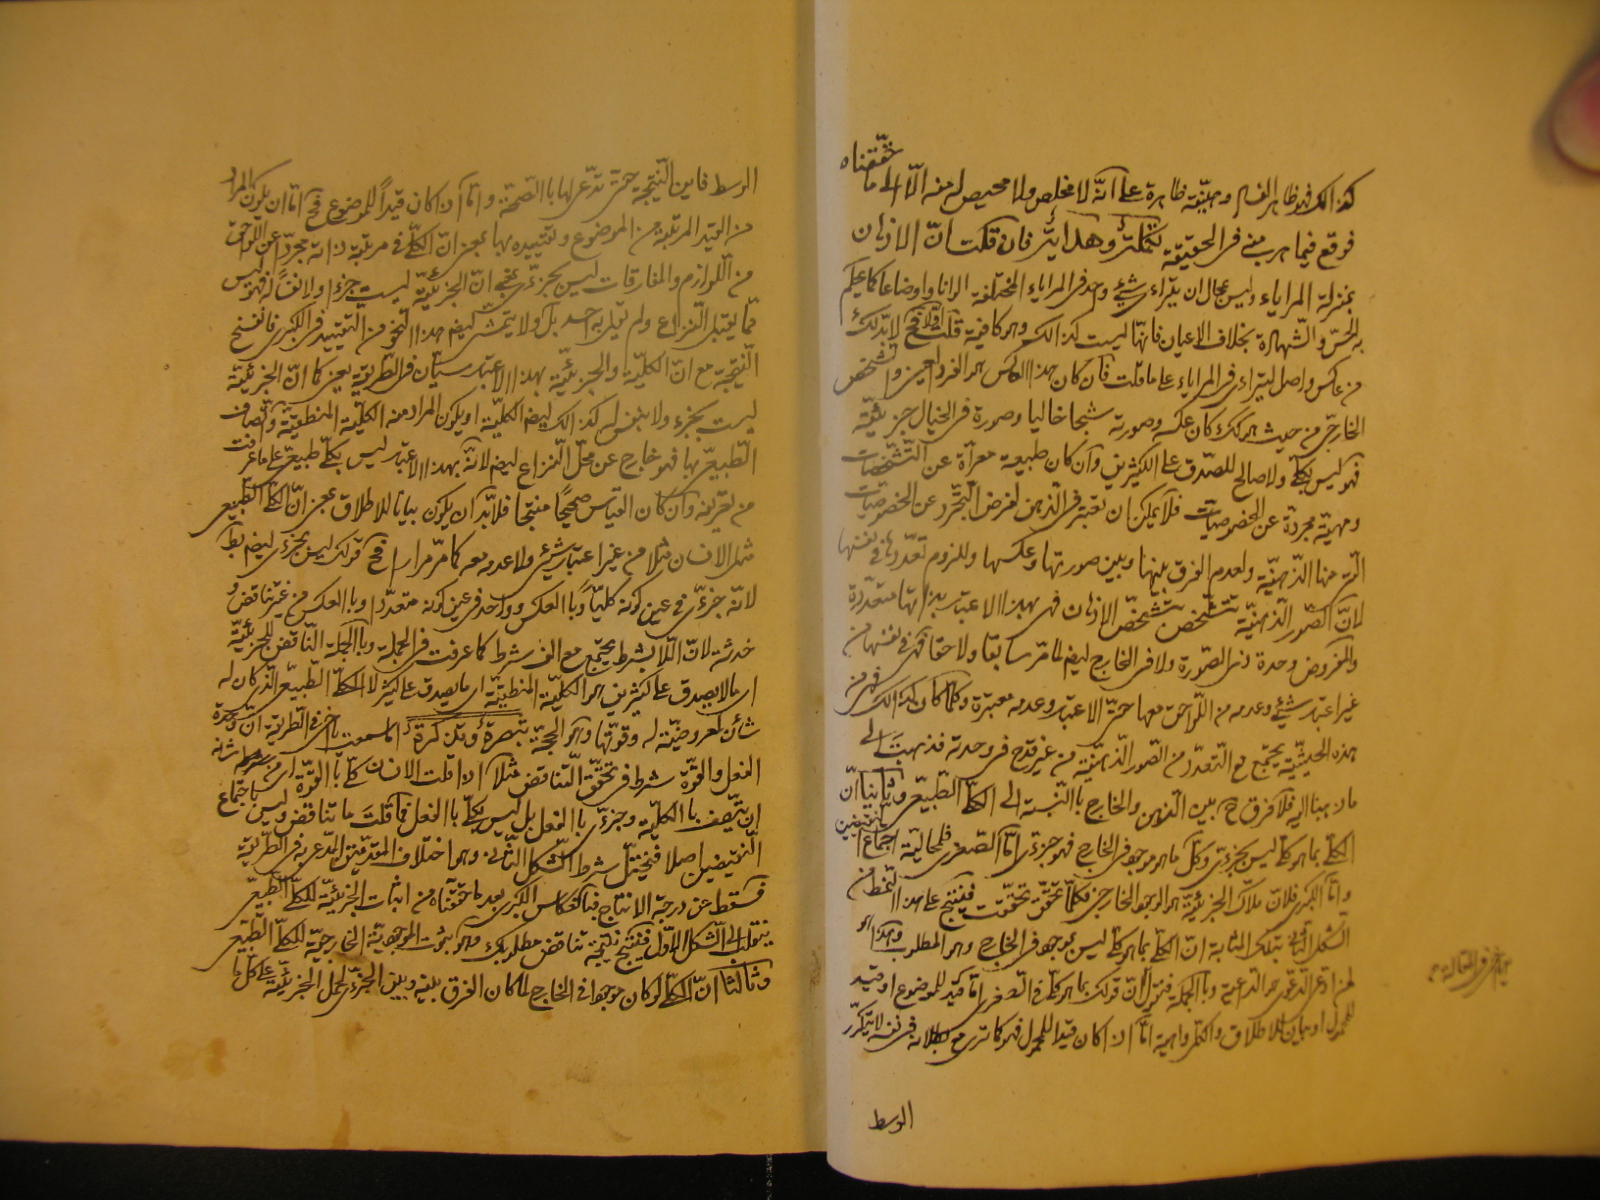 حققناه
كذلك فهو ظاهر الفساد وبينة ظاهرة على انه لا مخلص ولا محيص له منه الا الى ما
فوقع فيما هرب منه في الحقيقة تكملة وهداية فان قلت ان الاذهان
بمنزلة المراياء وليس بمحال ان يتراءى شيء واحد في المراياء المختلفة الوانا واوضاعا كما يحكم
به الحس والشهادة بخلاف الاعيان فانها ليست كذلك وهو كافية قلت فح لابد لك
من عاكس واصل ليتراءى في المراياء على ما قلت فان كان هذا العاكس هو الفرد العيني والشخص
الخارجي من حيث هو كك كان عكسه وصورته شبحا خاليا وصورة في الخيال جزئية
فهو ليس بكلي ولا صالح للصدق على الكثيرين وان كان طبيعة معراة عن التشخصات
ومهية مجردة عن الخصوصيات فلا يمكن ان تعتبر في الذهن لفرض التجرد عن الخصوصيات
التي منها الذهنية ولعدم الفرق بينها وبين صورتها وعكسها وللزوم تعددها في نفسها
لان الصور الذهنية تتشخص بتشخص الاذهان فهي بهذا الاعتبار بذاتها متعددة
والمفروض وحدة ذي الصورة ولا في الخارج ايضا لما مر سابقا ولاحقا فهي في نفسها من
غير اعتبار شيء وعدمه من اللواحق معها حتى الاعتبار وعدمه معتبرة وكلما كان كذلك فهي من
هذه الحيثية يجتمع مع التعدد من الصور الذهنية من غير قدح في وحدته فذهبت الى
ما ذهبنا اليه فلا فرق ح بين الذهن والخارج بالنسبة الى الكلي الطبيعي وثانيا ان
الكلي بما هو كلي ليس بجزئي وكل ما هو موجود في الخارج فهو جزئي اما الصغرى فلمحالية اجتماع النقيضين
واما الكبرى فلان ملاك الجزئية هو الوجود الخارجي فكلما تحقق تحققت فينتج على هذا النمط من
الشكل الثاني بتلك المثابة ان الكلي بما هو كلي ليس بموجود في الخارج وهو المطلوب وهذا هو
للمحمول او بيان للاطلاق والكل واهية اما اذا كان قيدا للمحمول فهو كما ترى مع بطلانه في نفسه لا يتكرر
الوسط
الوسط فاين النتيجة حتى تدعى لها بالصحة واما اذا كان قيدا للموضوع فح اما ان يكون المراد
من القيد المرتبة من الموضوع وتقييده بها بمعنى ان الكلي في مرتبة ذاته مجردا عن اللواحق
من اللوازم والمفارقات ليس بجزئي بمعنى ان الجزئية ليست جزءا ولا نفسا له فهو ليس
مما يقبل النزاع ولم يقل به احد بل ولا يتمشى ايضا هذا النحو من التقييد في الكبرى فانفسخ
النتيجة مع ان الكلية والجزئية بهذا الاعتبار سيان في الطريقة يعني كما ان الجزئية
ليست بجزء ولا بنفس له كذلك ايضا الكلية او يكون المراد منه الكلية المنطقية واتصاف
الطبيعي بها فهو خارج عن محل النزاع ايضا لانه بهذا الاعتبار ليس بكلي طبيعي على ما عرفت
من تعريفه وان كان القياس صحيحا منتجا فلابد ان يكون بيانا للاطلاق بمعنى ان الكلي الطبيعي
مثل الانسان مثلا من غير اعتبار شيء ولا عدمه معه كما مر مرارا فح قولك ليس بجزئي ايضا بط
لانه جزئي في عين كونه كليا وبالعكس وواحد في عين كونه متعددا وبالعكس من غير تناقض و
خدشة لان اللابشرط يجتمع مع الف شرط كما عرفت في المجملة وبالجملة التناقض للجزئية
اي ما لا يصدق على كثيرين هو الكلية المنطقية اي ما يصدق على كثير لا الكلي الطبيعي الذي كان له
شأن لمعروضية له وقوتها وهو الحجة تبصرة وتذكرة اما سمعت يا اخي في الطريقة ان وحدة
الفعل والقوة شرط في تحقق التناقض مثلا اذا قلت الانسان كلي بالقوة اي من شأنه
ان يتصف بالكلية وجزئي بالفعل بل ليس بكلي بالفعل فما قلت ما تناقض وليس باجتماع
النقيضين اصلا فيختل شرط الشكل الثاني وهو اختلاف المقدمتين المدعى به في الطريقة
فسقط عن درجة الانتاج فبانعكاس الكبرى بعد ما حققناه من اثبات الجزئية للكلي الطبيعي
ينقلب الى الشكل الاول فينتج نتيجة تناقض مطلوبك وهو ثبوت الموجودية الخارجية للكلي الطبيعي
وثالثا ان الكلي لو كان موجودا في الخارج لما كان الفرق بينه وبين الجزئي لحمل الجزئية على كل ما